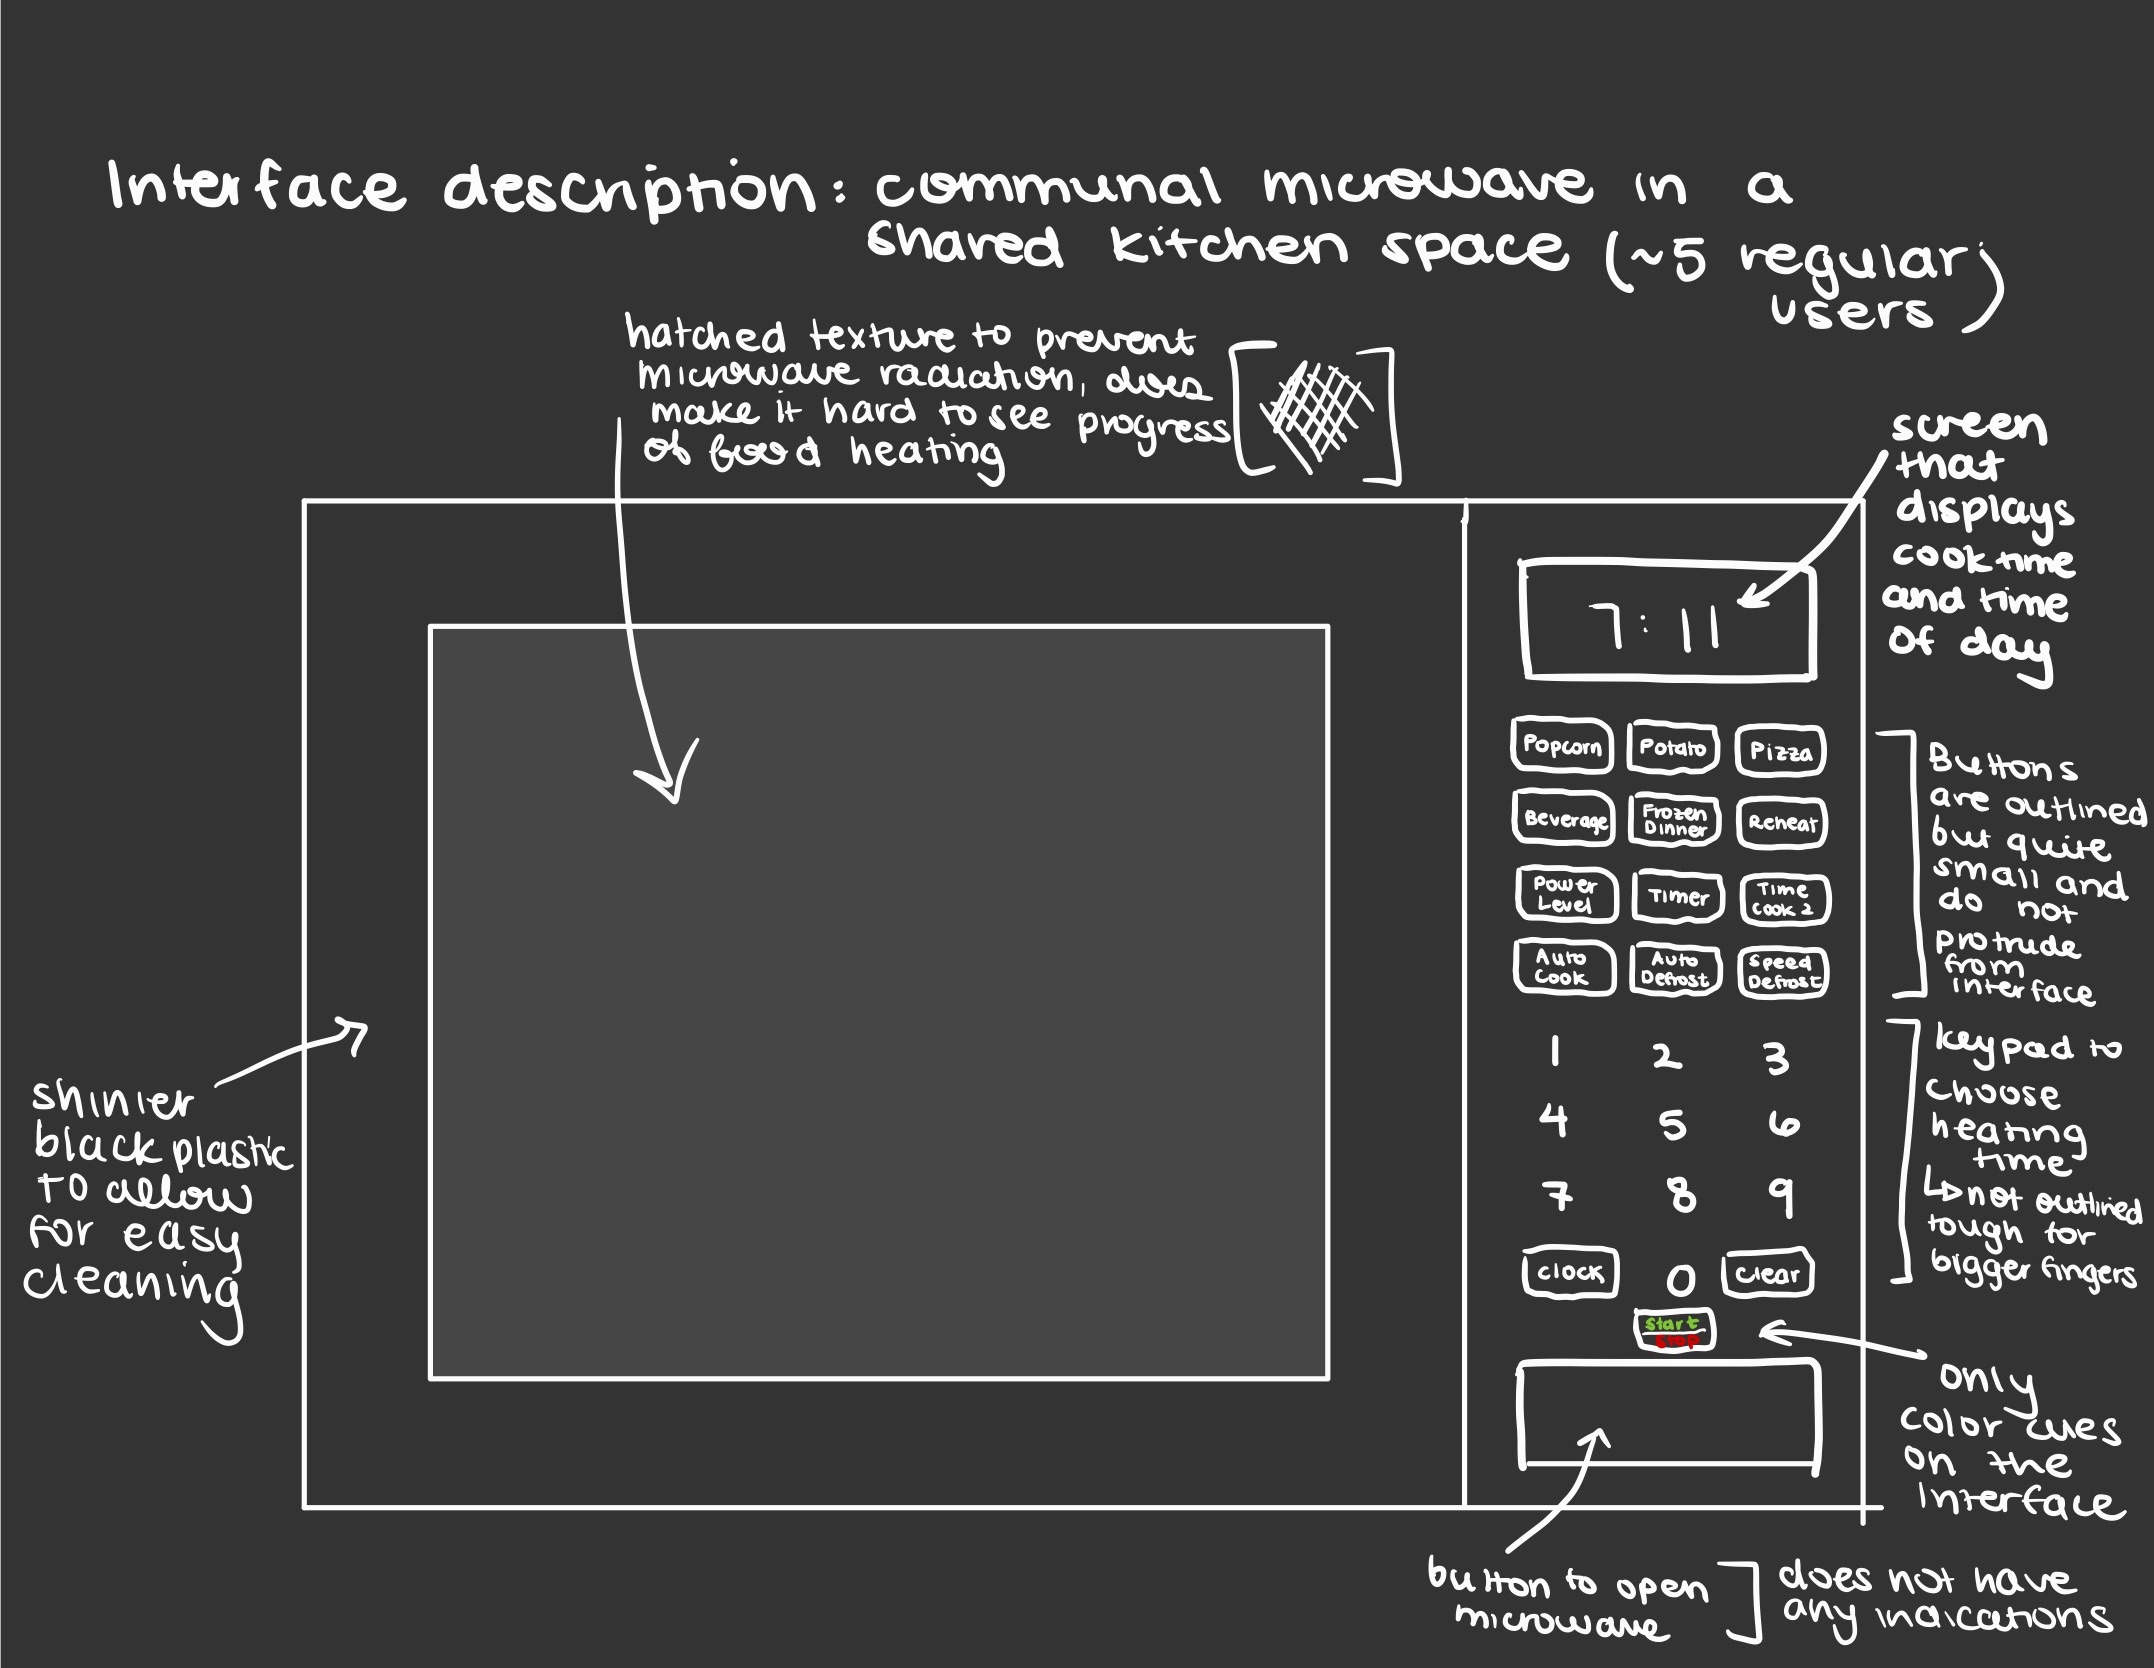 Interface description: communal microwave in a
shared kitchen space (~5 regular
users)
hatched texture to prevent
microwave radiation, does
make it hard to see progress
of food heating
screen
that
displays
cook time
and time
of day
7:11
Popcorn Potato Pizza
Beverage Frozen Dinner Reheat
Power Level Timer Time Cook 2
Auto Cook Auto Defrost Speed Defrost
Buttons
are outlined
but quite
small and
do not
protrude
from
interface
1 2 3
4 5 6
7 8 9
clock 0 clear
start
stop
keypad to
choose
heating
time
↳ not outlined
tough for
bigger fingers
shinier
black plastic
to allow
for easy
cleaning
only
color cues
on the
interface
button to open
microwave
does not have
any indications